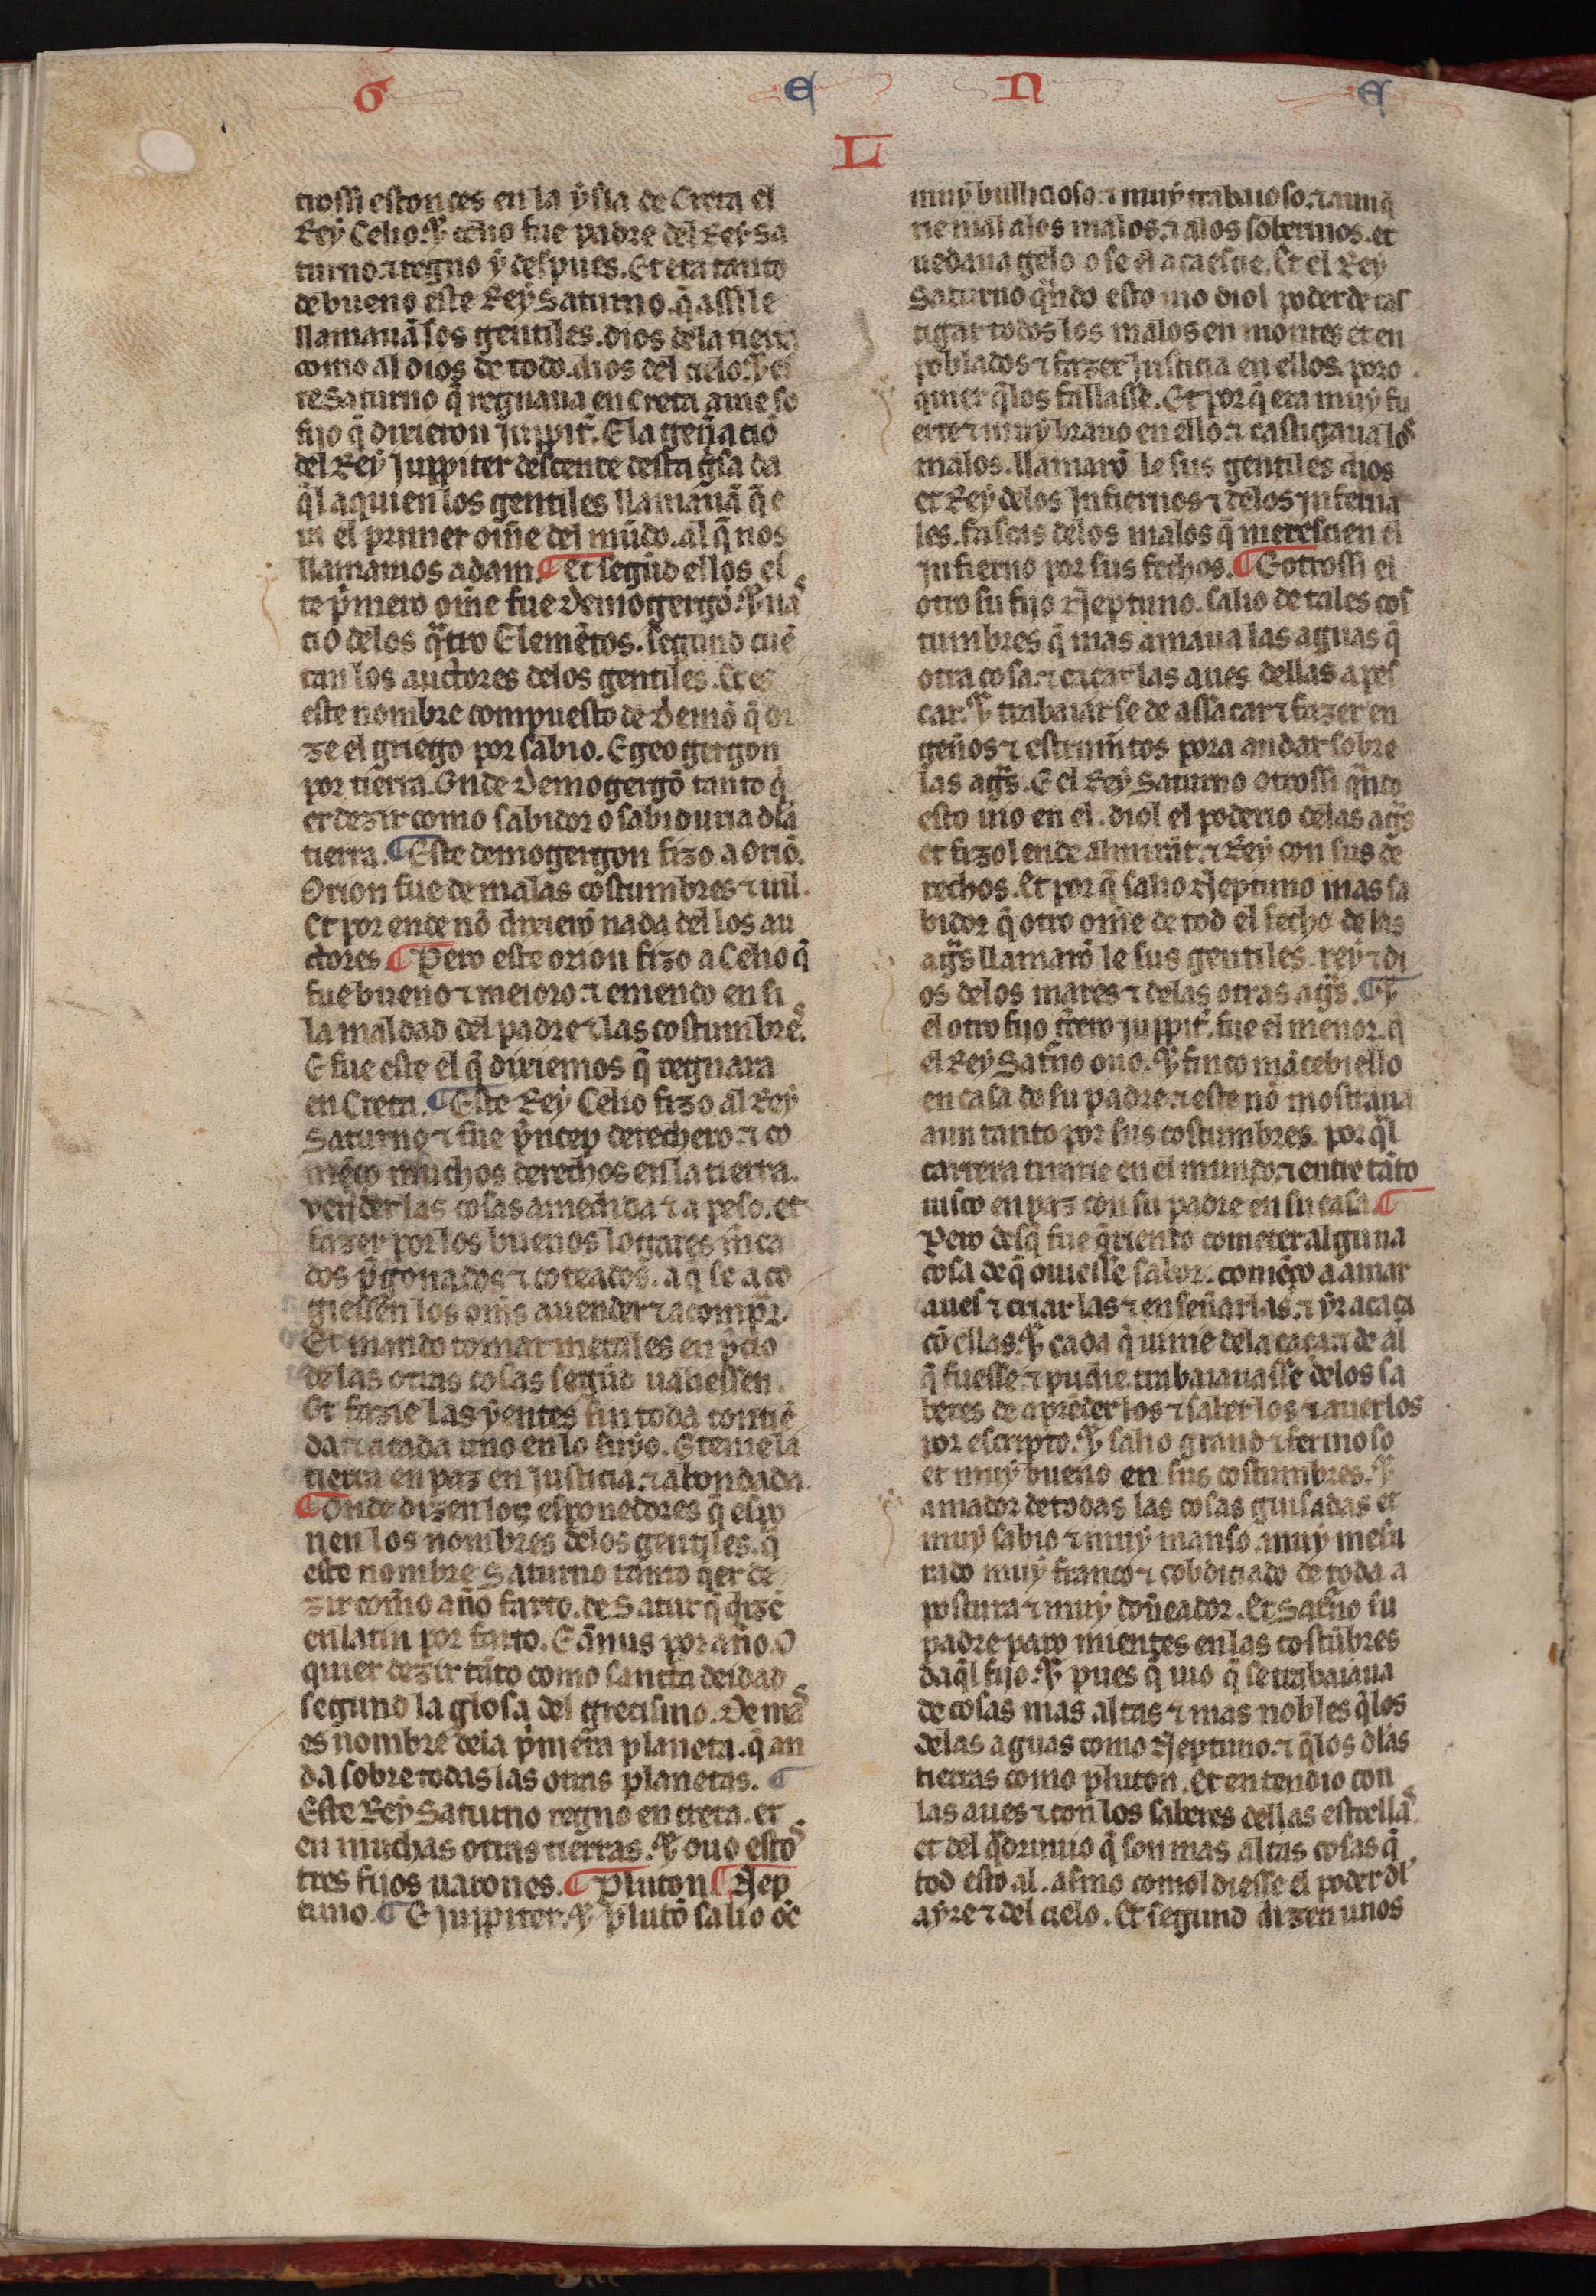 G E N E
L
trossi estonces en la ẏsla de Creta el
Reẏ Celio. ⁊ celio fue padre del Reẏ Sa
turno. ⁊ regno ẏ despues. Et era tanto
de bueno este Reẏ Saturno. q̃ assi le
llamauã los gentiles. dios dela tierra
como al dios de todo. dios del cielo. ⁊ es
te Saturno q̃ regnaua en Creta ouie so
fijo q̃ dixieron juppit̃. E la gen̄acio
del Reẏ Juppiter desçende desta gͥsa da
q̃l aquien los gentiles llamauã q̃ e
ra el primer om̃e del mũdo. al q̃ nos
llamamos adam. ¶ Et segũd ellos es
te pͥmero om̃e fue Demogergõ. ⁊ naˢ
cio delos qͣtro Elemẽtos. segund cuẽ
tan los auctores delos gentiles. Et es
este nombre compuesto de Demõ q̃ di
ze el griego por sabio. E geo gergon
por tierra. Onde Demogergõ tanto q̃
er dezir como sabidor o sabiduria dla
tierra. ¶ Este demogergon fizo a oriõ.
Orion fue de malas costumbres ⁊ uil.
Et por ende nõ dixierõ nada del los au
ctores. ¶ Pero este orion fizo a Celio q̃
fue bueno ⁊ meioro. ⁊ emendo en si
la maldad del padre ⁊ las costumbreˢ.
E fue este el q̃ dixiemos q̃ regnara
en Creta. ¶ Este Reẏ Celio fizo al Reẏ
Saturno ⁊ fue pͥncep derechero. ⁊ co
mẽço muchos derechos en la tierra.
vender las cosas amedida ⁊ a peso. et
fazer por los buenos logares m̃ca
dos pͥgonados ⁊ coteados. a q̃ se aco
giessen los om̃s auender ⁊ acomp̃r.
Et mando tomar metales en pͥcio
de las otras cosas segũd ualiessen.
Et fazie las ẏentes sin toda contiẽ
da ⁊ a cada uno en lo suẏo. E tenie la
tierra en paz en justicia. ⁊ abondada.
¶ Onde dizen los esponedores q̃ espo
nen los nombres delos gentiles. q̃
este nombre Saturno tanto q̃er de
zir com̃o año farto. de Satur q̃ dizẽ
en latin por farto. E ãnus por año. O
quier dezir tãto como sancta deidad
segund la glosa del grecismo. De maˢ
es nombre dela pͥmera planeta. q̃ an
da sobre todas las otras planetas. ¶
Este Reẏ Saturno regno en creta. et
en muchas otras tierras. ⁊ ouo estoˢ
tres fijos uarones. ¶ Pluton ¶ Nep
tuno. ¶ E juppiter. ⁊ plutõ salio de
muẏ bullicioso. ⁊ muẏ trabaioso. ⁊ aunq̃
rie mal alos malos. ⁊ alos soberuios. et
uedaua gelo o se el acaesçie. Et el Reẏ
Saturno qͣndo esto uio diol poder de cas
tigar todos los malos en montes et en
poblados ⁊ fazer justicia en ellos. poro
quier q̃ los fallasse. Et por q̃ era muẏ fu
erte ⁊ muẏ brauo en ello. ⁊ castigaua loˢ
malos. llamarõ le sus gentiles dios
et Reẏ delos Jnfiernos ⁊ delos jnferna
les. fascas delos malos q̃ merescien el
jnfierno por sus fechos. ¶ Eotrossi el
otro su fijo Neptuno. salio de tales cos
tumbres q̃ mas amaua las aguas q̃
otra cosa. ⁊ caçar las aues dellas a pes
car. ⁊ trabaiar se de assacar ⁊ fazer en
geños ⁊ estrum̃tos pora andar sobre
las agͣs. E el Reẏ Saturno otrossi qͣndo
esto uio en el. diol el poderio delas agͣs
et fizol ende almirãt. ⁊ Reẏ con sus de
rechos. Et por q̃ salio Neptuno mas sa
bidor q̃ otro om̃e de tod el fecho de las
agͣs llamarõ le sus gentiles. reẏ ⁊ di
os delos mares ⁊ delas otras agͣs. ¶ ⁊
el otro fijo tͥcero juppit̃. fue el menor. q̃
el Reẏ Satño ouo. ⁊ finco mãcebiello
en casa de su padre. ⁊ este nõ mostraua
aun tanto por sus costumbres. por q̃l
carrera tirarie en el mundo. ⁊ entre tãto
uisco en paz con su padre en su casa. ¶
Pero desq̃ fue q̃riendo cometer alguna
cosa de q̃ ouiesse sabor. comẽço a amar
aues ⁊ criar las ⁊ enseñarlas. ⁊ ẏr a caça
cõ ellas. ⁊ cada q̃ uinie dela caça. ⁊ de al
q̃ fuesse. ⁊ pudie. trabaiauasse delos sa
beres de aprẽder los ⁊ saber los ⁊ auerlos
por escripto. ⁊ salio grand ⁊ fermoso
et muẏ bueno en sus costumbres. ⁊
amador de todas las cosas guisadas et
muẏ sabio ⁊ muẏ manso. muẏ mesu
rado muẏ franco ⁊ cobdiciado de toda a
postura ⁊ muẏ doñeador. Et Satño su
padre paro mientes en las costũbres
daq̃l fijo. ⁊ pues q̃ uio q̃ se trabaiaua
de cosas mas altas ⁊ mas nobles q̃ los
delas aguas como Neptuno. ⁊ q̃ los dlas
tierras como pluton. Et entendio con
las aues ⁊ con los saberes dellas estrellaˢ
et del qͣdruuio q̃ son mas altas cosas q̃
tod esto al. asmo comol diesse el poder dl
aẏre ⁊ del cielo. Et segund dizen unos